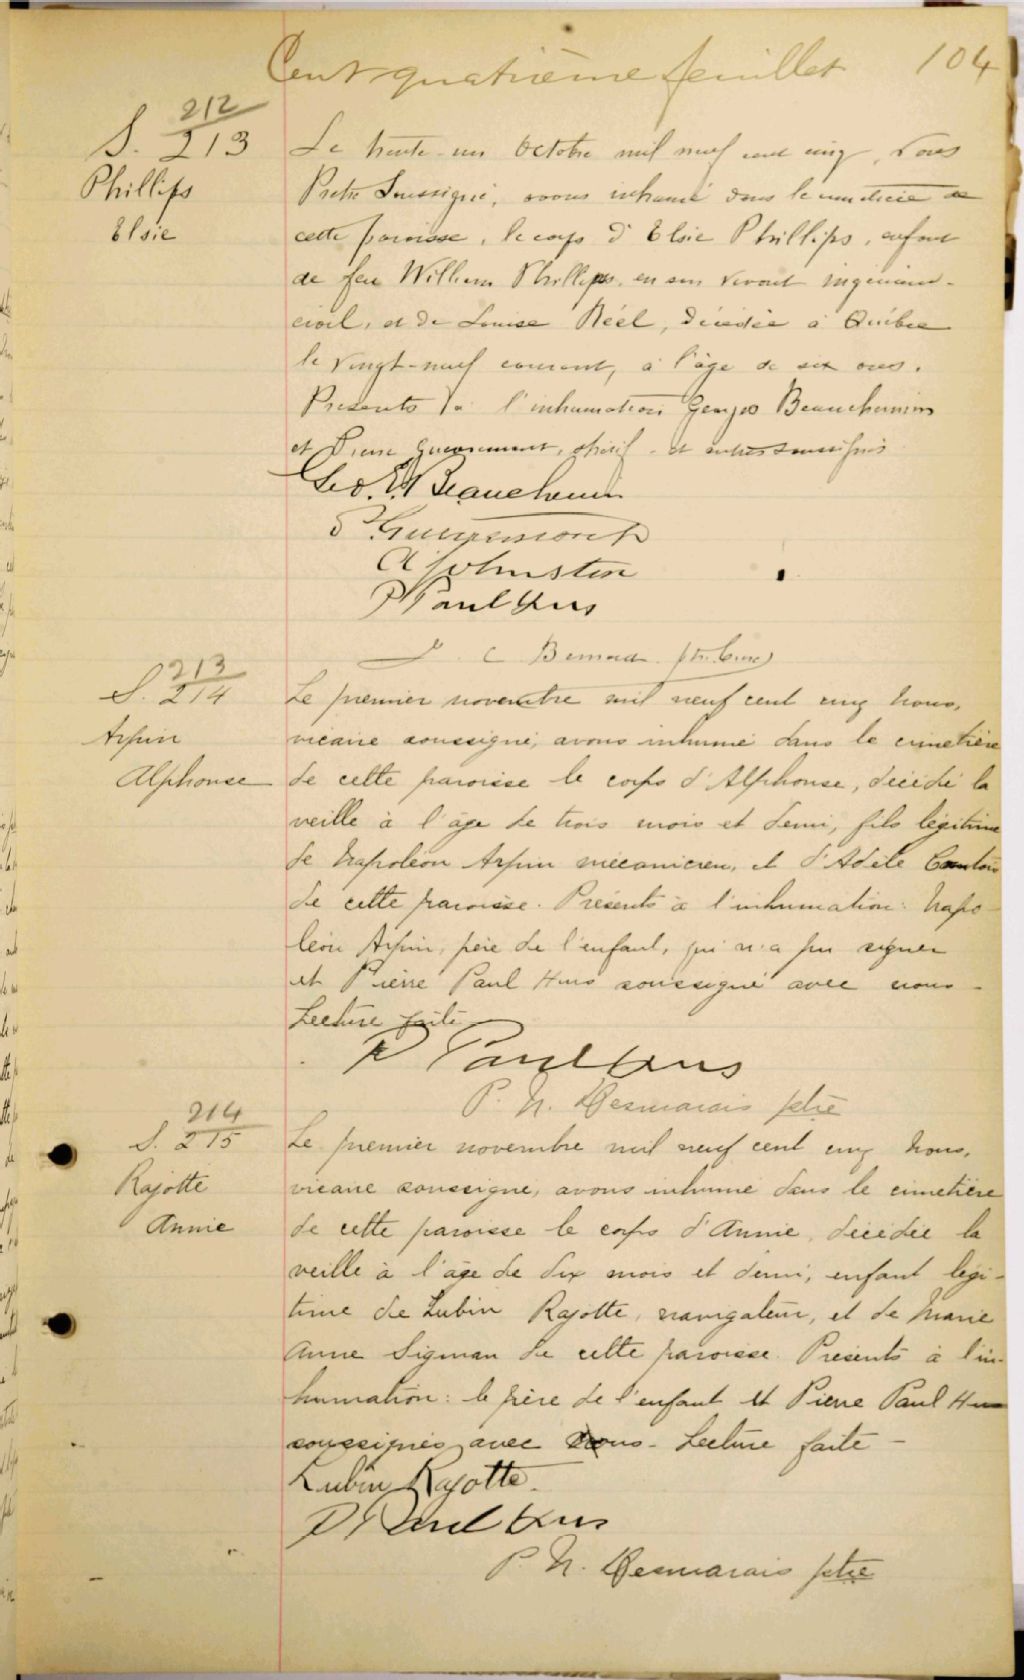 Cent quatrième feuillet 104
212
S. 213
Phillips
Elsie
Le trente-un Octobre mil neuf cent cinq, Nous
Prêtre Soussigné, avons inhumé dans le cimetière de
cette paroisse, le corps d'Elsie Phillips, enfant
de feu William Phillips, en son vivant ingénieur-
civil, et de Louise Réél, décédée à Québec
le vingt-neuf courant, à l'âge de six ans.
Présents à l'inhumation Georges Beauchemin
et Pierre Guevremont, shérif - et autres soussignés
Geo. E. Beauchemin
P. Guevremont
A Johnston
P Paul Hus
C Bernard ptre. Curé
213
S. 214
Arpin
Alphonse
Le premier novembre mil neuf cent cinq Nous,
vicaire soussigné, avons inhumé dans le cimetière
de cette paroisse le corps d'Alphonse, décédé la
veille à l'âge de trois mois et demi, fils légitime
de Napoléon Arpin mécanicien, et d'Adèle
de cette paroisse. Présents à l'inhumation: Napo-
léon Arpin, père de l'enfant, qui n'a pu signer
et Pierre Paul Hus soussigné avec nous -
Lecture faite
P Paul Hus
P. N. Desmarais ptre
214
S. 215
Rajotte
Annie
Le premier novembre mil neuf cent cinq Nous,
vicaire soussigné, avons inhumé dans le cimetière
de cette paroisse le corps d'Annie, décédée la
veille à l'âge de dix mois et demi, enfant légi-
time de Lubin Rajotte, navigateur, et de Marie
Anne Sigman de cette paroisse. Présents à l'in-
humation: le père de l'enfant et Pierre Paul Hus
soussignés avec nous - Lecture faite -
Lubin Rajotte.
P Paul Hus
P. N. Desmarais ptre